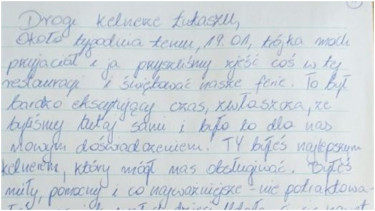 Drogi kelnerze Łukaszu,
Około tygodnia temu, 19.01, trójka moich
przyjaciół i ja przyszliśmy zjeść coś w tej
restauracji i świętować nasze ferie. To był
bardzo ekscytujący czas, zwłaszcza, że
byliśmy tutaj sami i było to dla nas
nowym doświadczeniem. TY byłeś najlepszym
kelnerem, który mógł nas obsługiwać. Byłeś
miły, pomocny i co najważniejsze - nie potraktowa-